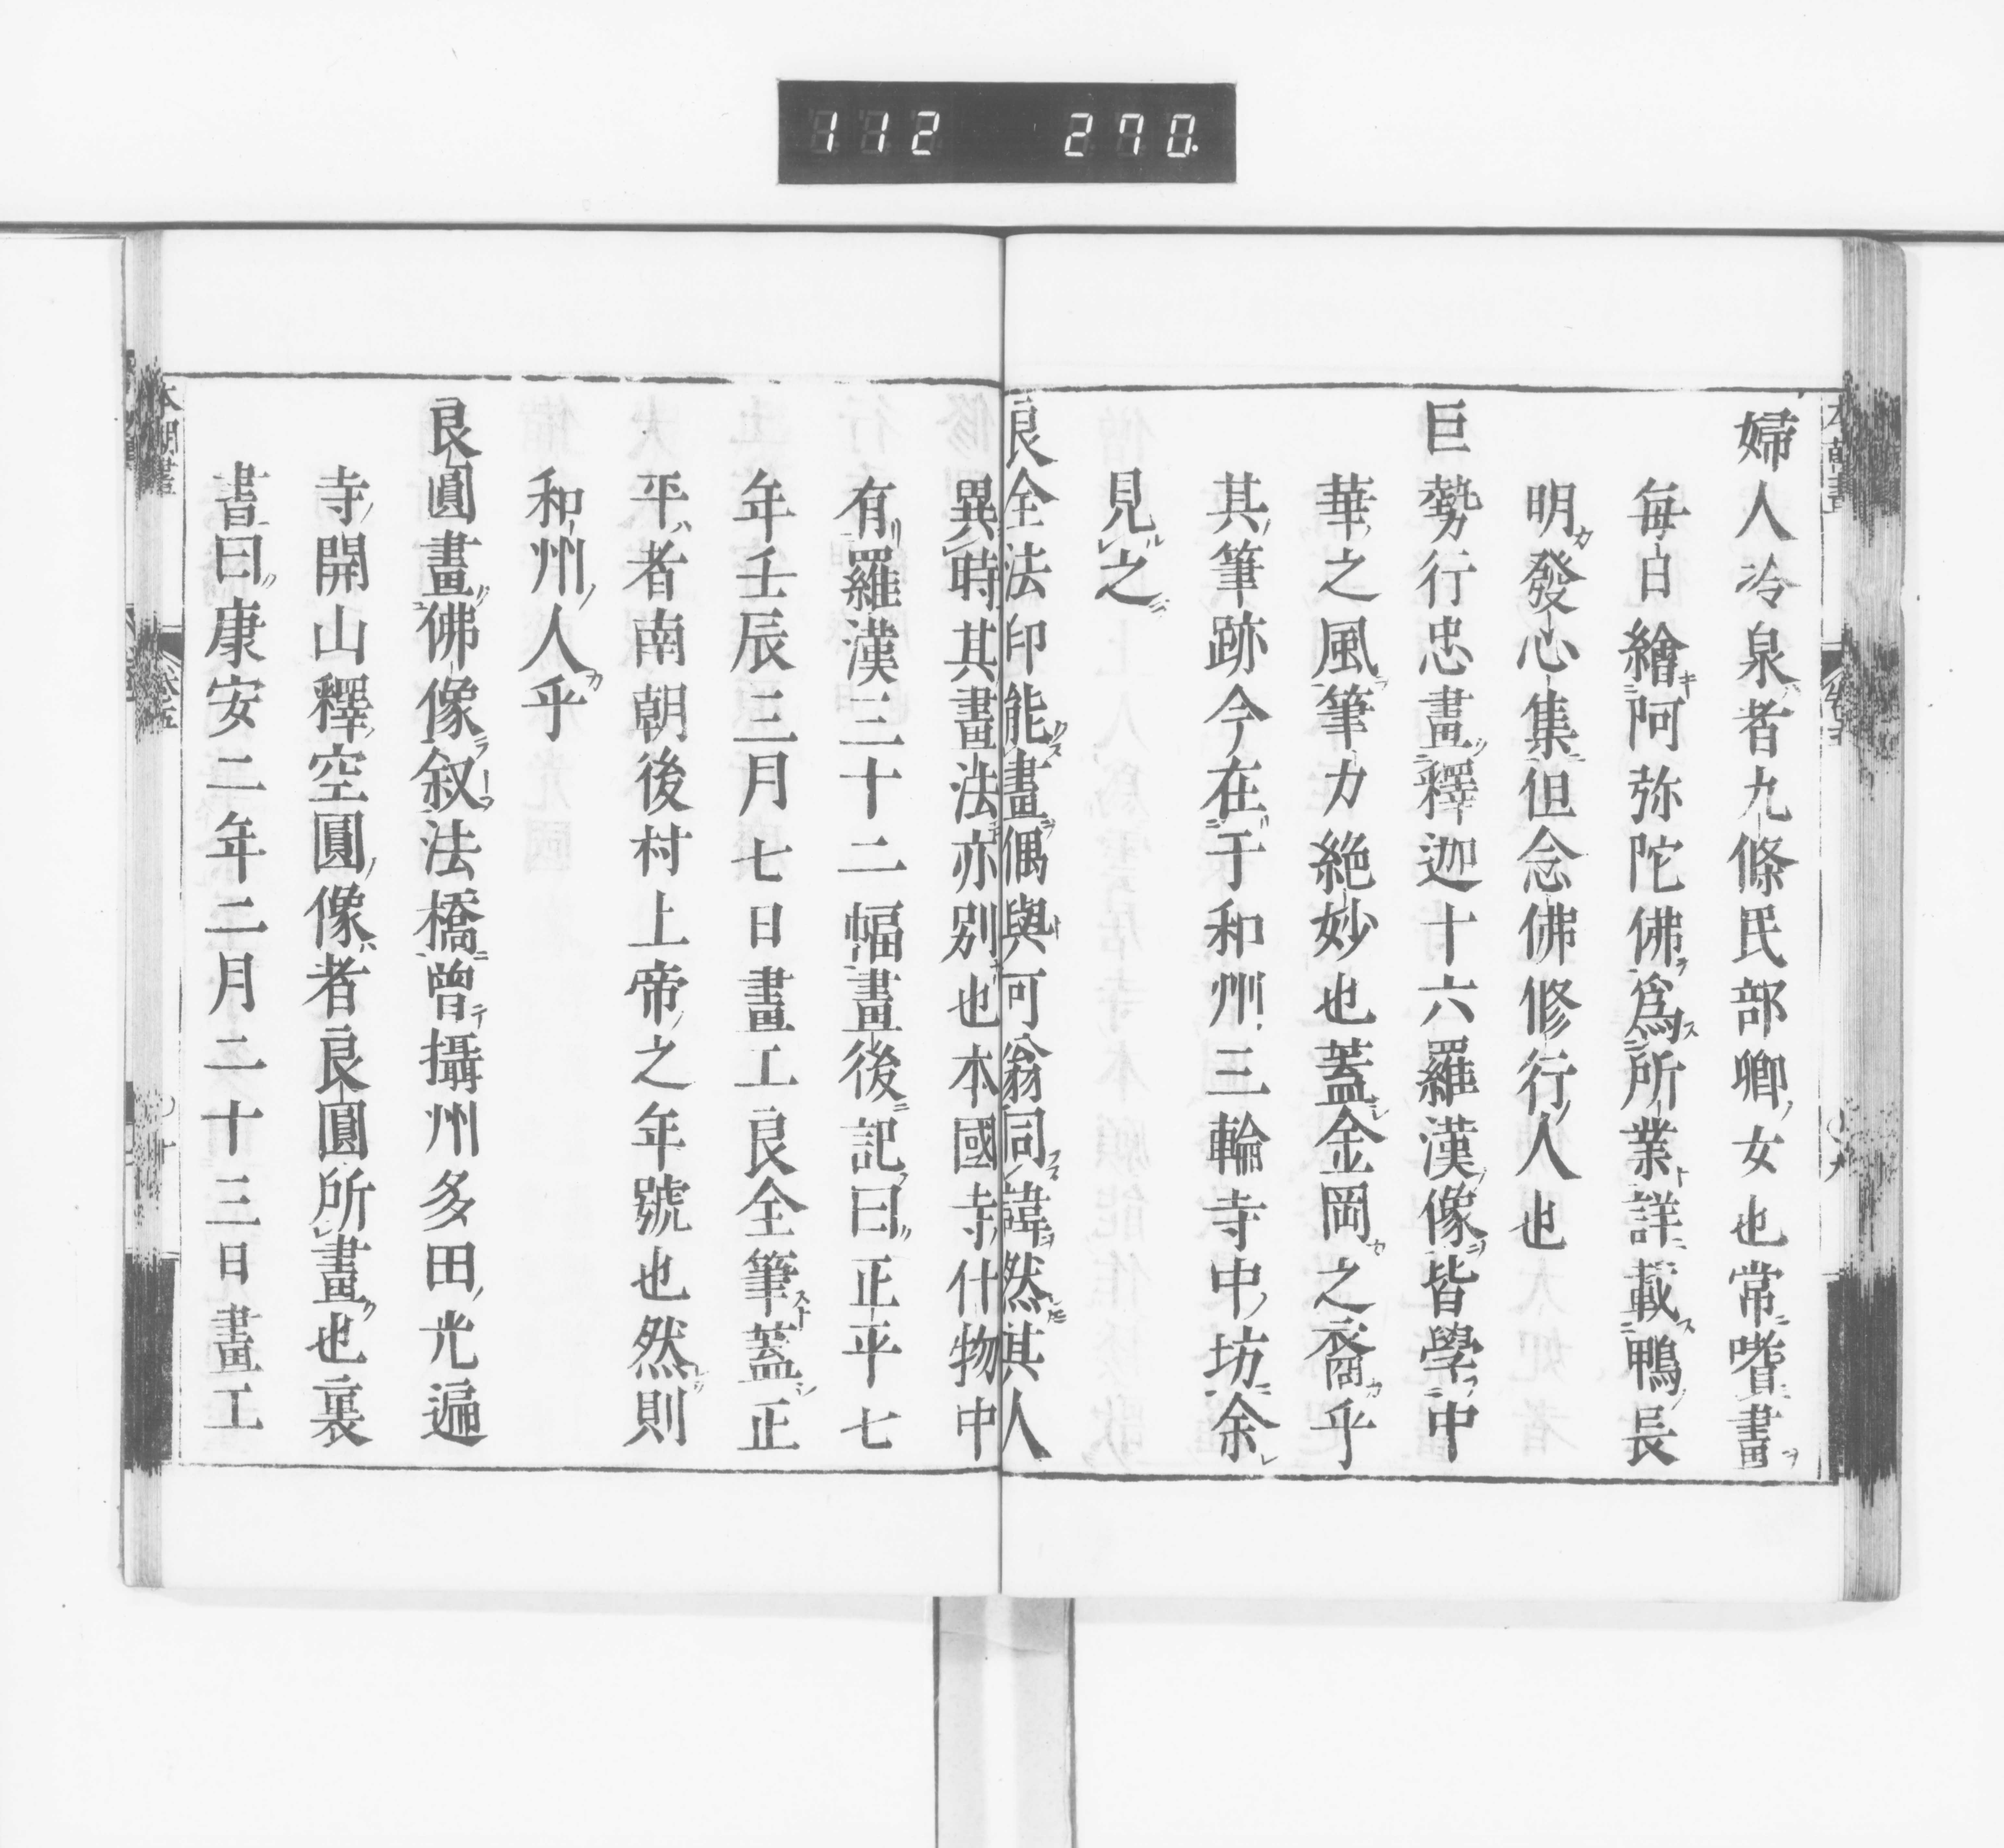 112 270.
婦人冷泉者九條民部卿女也常嗜畫
毎日繪阿弥陀佛爲所業詳載鴨長
明發心集但念佛修行人也
巨勢行忠畫釋迦十六羅漢像皆學中
華之風筆力絶妙也蓋金岡之裔乎
其筆跡今在于和州三輪寺中坊余
見之
良全法印能畫偶與可翁同諱然其人
異時其畫法亦別也本國寺什物中
有羅漢三十二幅畫後記曰正平七
年壬辰三月七日畫工良全筆蓋正
平者南朝後村上帝之年號也然則
和州人乎
良圓畫佛像叙法橋曽攝州多田光遍
寺開山釋空圓像者良圓所畫也裏
書曰康安二年二月二十三日畫工